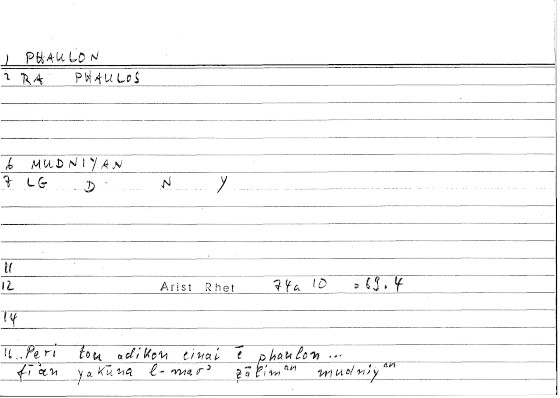 1 PHAULON
2 RA PHAULOS
6 MUDNIYAN
7 LG D N Y
11
12 Arist Rhet 74a 10 = 69.4
14
16 .. Peri tou adikon einai ē phaulon ...
fī an yakūna l-marʾ ẓālimᵃⁿ mudniyᵃⁿ